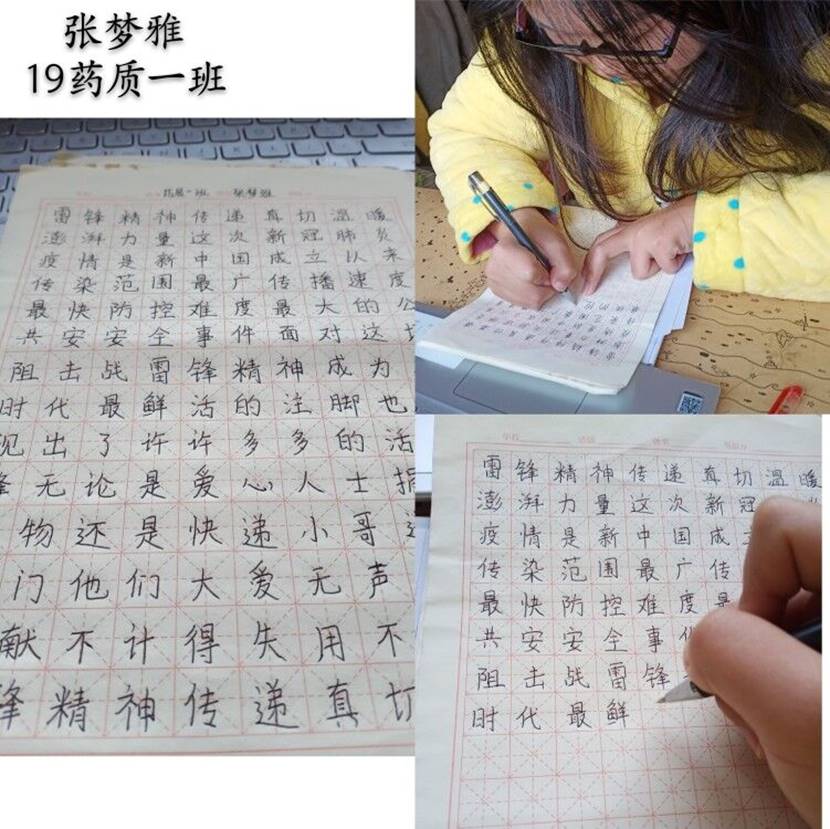 张梦雅
19药质一班
药质一班 张梦雅
雷锋精神传递真切温暖
澎湃力量这次新冠肺炎
疫情是新中国成立以来
传染范围最广传播速度
最快防控难度最大的公
共安安全事件面对这场
阻击战雷锋精神成为
时代最鲜活的注脚也
现出了许许多多的活
锋无论是爱心人士捐
物还是快递小哥
门他们大爱无声
献不计得失用不
锋精神传递真切
雷锋精神传递真切温暖
澎湃力量这次新冠
疫情是新中国成立
传染范围最广传
最快防控难度最
共安安全事件
阻击战雷锋
时代最鲜